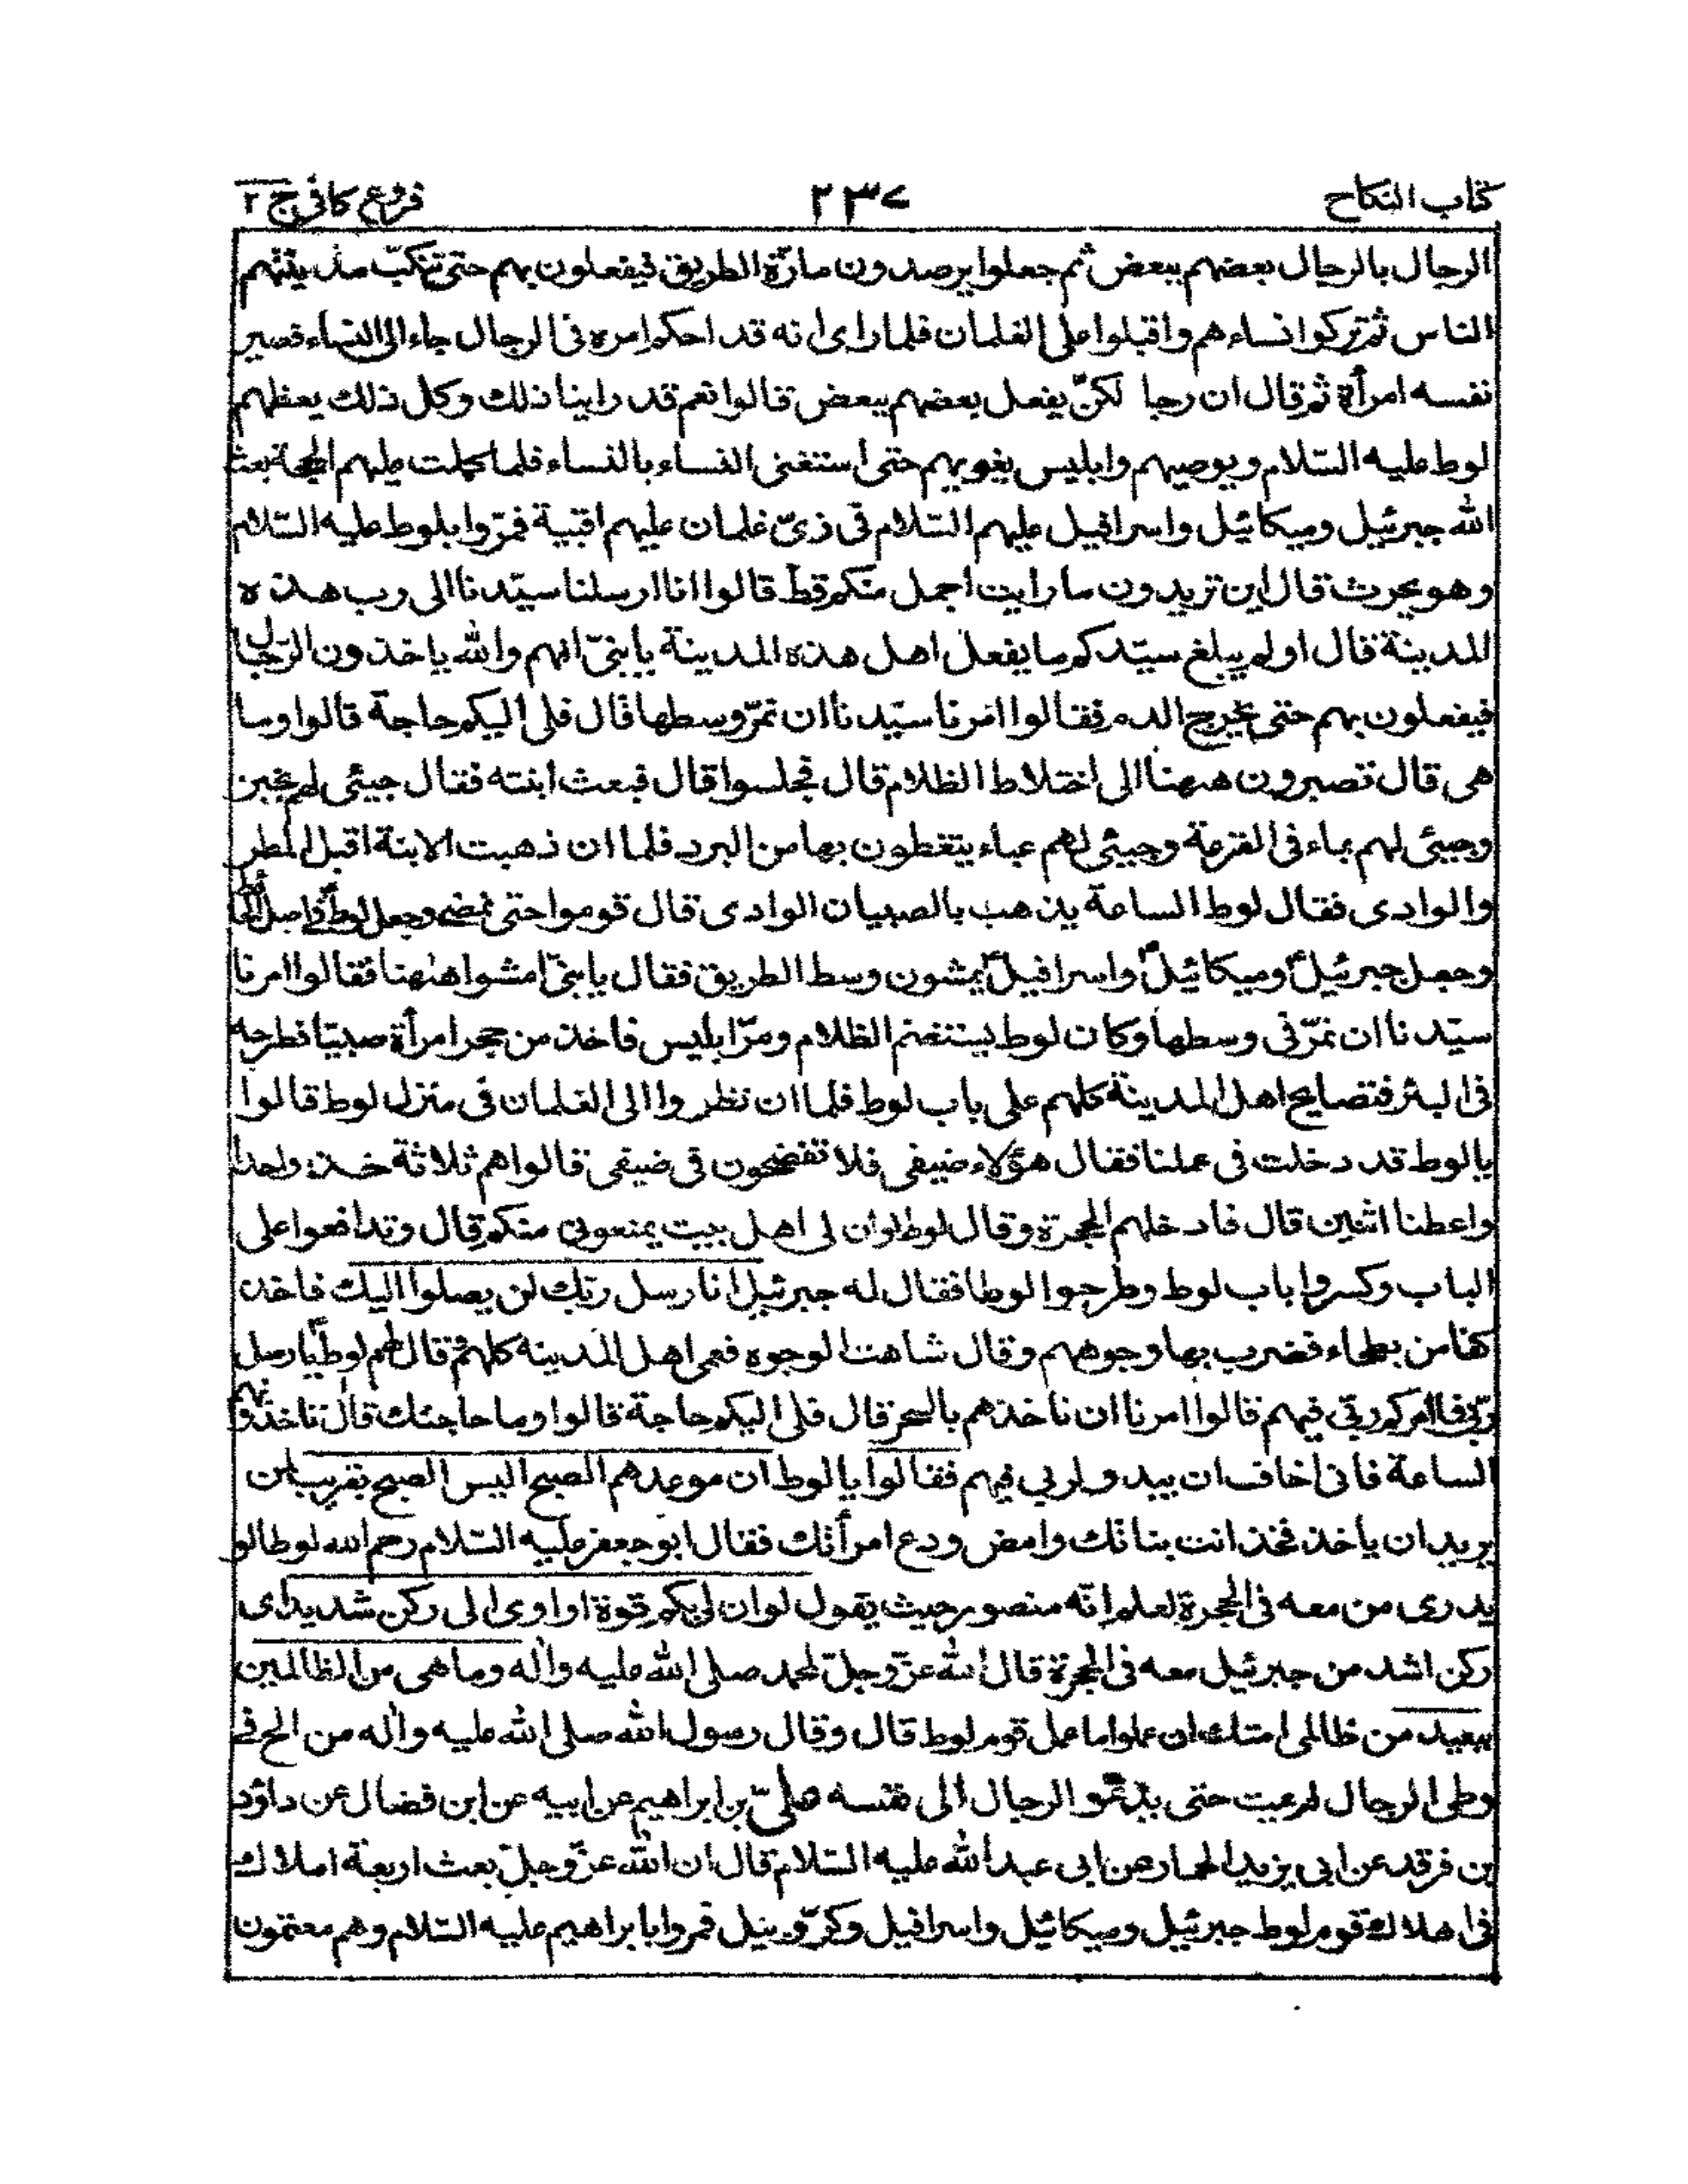 كتاب النكاح
٢٣٧
فروع كافى ج ٢
الرجال بالرجال بعضهم ببعض ثم جعلوا يرصدون مارّة الطريق فيفعلون بهم حتى تنكّب مدينتهم
الناس ثم تركوا نساءهم واقبلوا على الغلمان فلما راى انه قد احكم امره فى الرجال جاء الى النساء فصير
نفسه امرأة ثم قال ان رجا لكنّ يفعل بعضهم ببعض قالوا نعم قد راينا ذلك وكل ذلك يعظهم
لوط عليه السّلام ويوصيهم وابليس يغويهم حتى استغنى النساء بالنساء فلما كملت عليهم الحجة بعث
الله جبرئيل وميكائيل واسرافيل عليهم السّلام فى زىّ غلمان عليهم اقبية فمرّوا بلوط عليه السّلام
وهو يحرث قال اين تريدون ما رايت اجمل منكم قطّ قالوا انا ارسلنا سيّدنا الى رب هذه
المدينة قال اولم يبلغ سيّدكم ما يفعل اهل هذه المدينة يا بنىّ انهم والله ياخذون الرّجال
فيفعلون بهم حتى يخرج الدم فقالوا امرنا سيّدنا ان نمرّ وسطها قال فلى اليكم حاجة قالوا وما
هى قال تصبرون ههنا الى اختلاط الظلام قال فجلسوا قال فبعث ابنته فقال جيئى لهم بخبز
وجيئى لهم بماء فى القرعة وجيئى لهم عباء يتغطون بها من البرد فلما ان ذهبت الابنة اقبل المطر
والوادى فقال لوط الساعة يذهب بالصبيان الوادى قال قوموا حتى نمضى وجعل لوط يمشى فى اصل الحائط
وجعل جبرئيل وميكائيل واسرافيل يمشون وسط الطريق فقال يا بنىّ امشوا ههنا فقالوا امرنا
سيّدنا ان نمرّ فى وسطها وكان لوط يستغنم الظلام ومرّ ابليس فاخذ من حجر امرأة صبيّا فطرحه
فى البئر فتصايح اهل المدينة كلهم على باب لوط فلما ان نظروا الى الغلمان فى منزل لوط قالوا
يا لوط قد دخلت فى عملنا فقال هؤلاء ضيفى فلا تفضحون فى ضيفى قالوا هم ثلاثة خذ واحدا
واعطنا اثنين قال فادخلهم الحجرة وقال لوط لو ان لى اهل بيت يمنعونى منكم قال وتدافعوا على
الباب وكسروا باب لوط وطرحوا لوطا فقال له جبرئيل انا رسل ربّك لن يصلوا اليك فاخذ
كفا من بطحاء فضرب بها وجوههم وقال شاهت الوجوه فعمى اهل المدينة كلهم ثم قال لهم لوط يا رسل
ربّى فما امركم ربّى فيهم قالوا امرنا ان ناخذهم بالسحر قال فلى اليكم حاجة قالوا وما حاجتك قال تاخذونهم
الساعة فانى اخاف ان يبدو لربي فيهم فقالوا يا لوط ان موعدهم الصبح اليس الصبح بقريب لمن
يريد ان ياخذ فخذ انت بناتك وامض ودع امرأتك فقال ابو جعفر عليه السّلام رحم الله لوطا لو
يدرى من معه فى الحجرة لعلم انّه منصور حيث يقول لو ان لى بكم قوة او اوى الى ركن شديد اى
ركن اشد من جبرئيل معه فى الحجرة قال الله عزّ وجلّ لمحمد صلى الله عليه واله وما هى من الظالمين
ببعيد من ظالمى امتك ان عملوا ما عمل قوم لوط قال وقال رسول الله صلى الله عليه واله من الح فى
وطى الرجال لم يمت حتى يدعو الرجال الى نفسه علىّ بن ابراهيم عن ابيه عن ابن فضال عن داؤد
بن فرقد عن ابى يزيد الحمار عن ابى عبد الله عليه السّلام قال ان الله عزّ وجلّ بعث اربعة املاك
فى اهلاك قوم لوط جبرئيل وميكائيل واسرافيل وكرّوبيل فمروا بابراهيم عليه السّلام وهم معتمّون